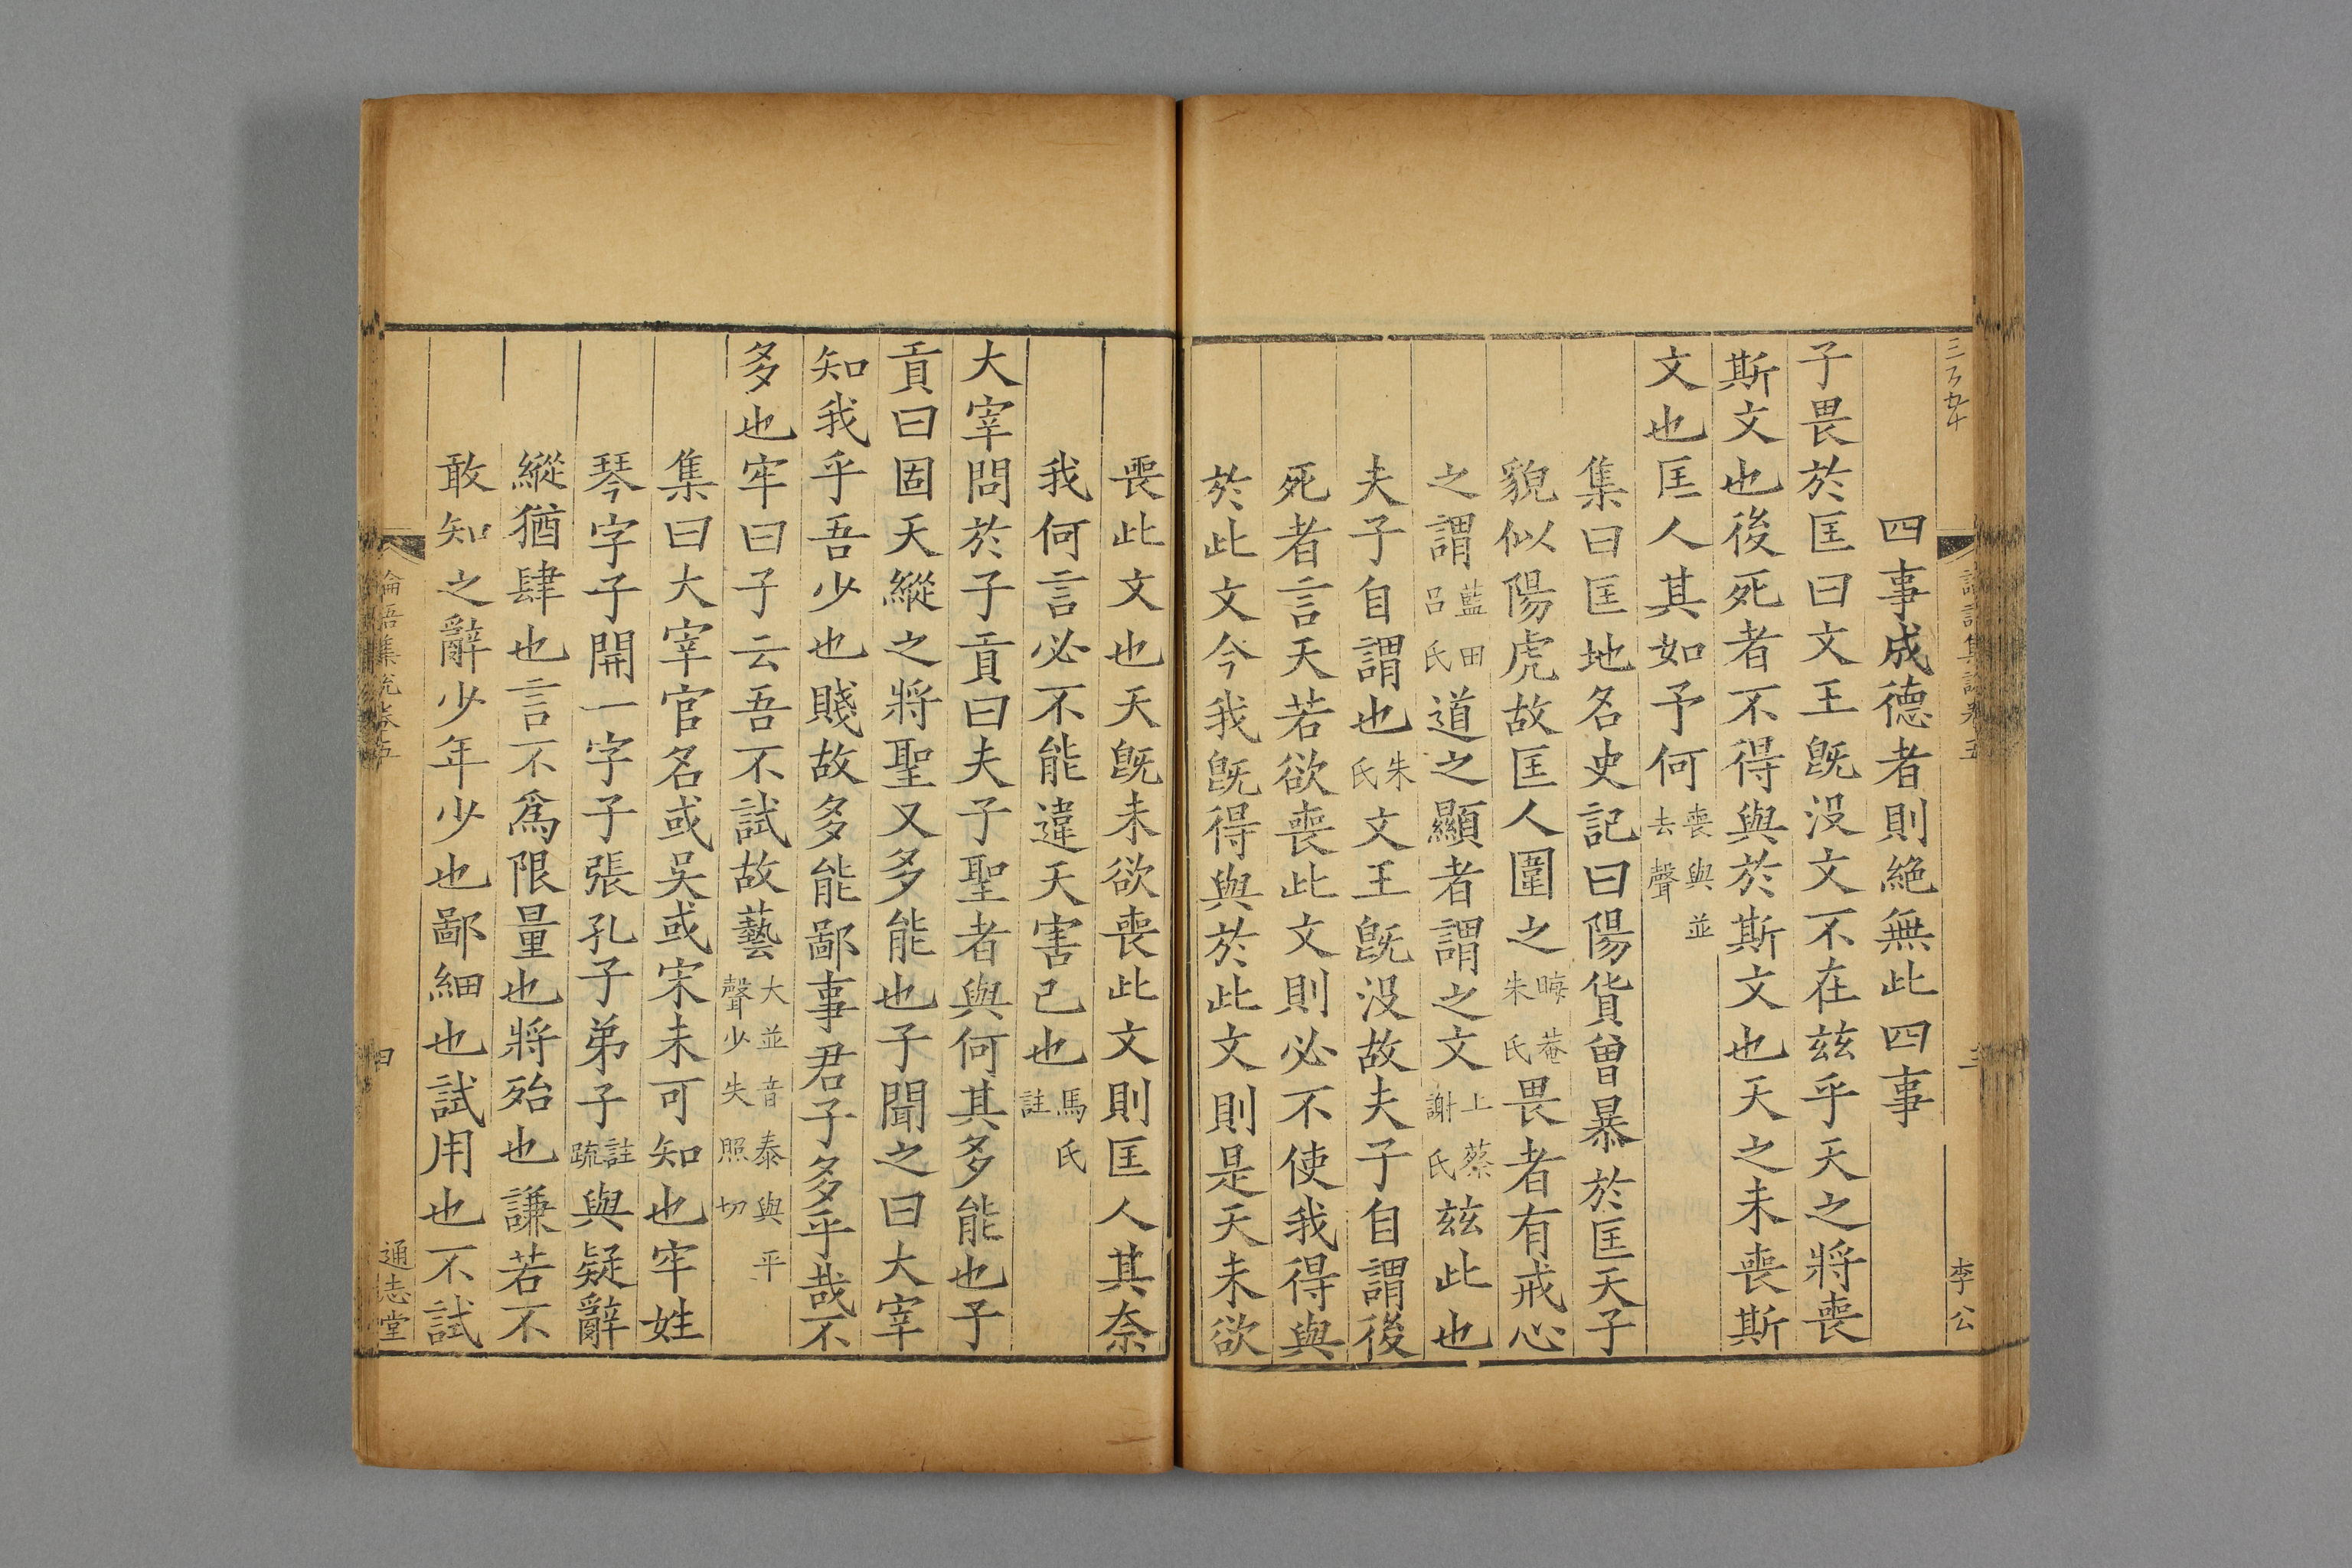 四事成德者則絶無此四事
子畏於匡曰文王旣没文不在兹乎天之將喪
斯文也後死者不得與於斯文也天之未喪斯
文也匡人其如予何喪與並去聲
集曰匡地名史記曰陽貨曾暴於匡夫子
貌似陽虎故匡人圍之晦菴朱氏畏者有戒心
之謂藍田呂氏道之顯者謂之文上蔡謝氏兹此也
夫子自謂也朱氏文王旣没故夫子自謂後
死者言天若欲喪此文則必不使我得與
於此文今我旣得與於此文則是天未欲
喪此文也天旣未欲喪此文則匡人其奈
我何言必不能違天害己也馬氏註
大宰問於子貢曰夫子聖者與何其多能也子
貢曰固天縱之將聖又多能也子聞之曰大宰
知我乎吾少也賤故多能鄙事君子多乎哉不
多也牢曰子云吾不試故藝大並音泰與平聲少失照切
集曰大宰官名或吳或宋未可知也牢姓
琴字子開一字子張孔子弟子註疏與疑辭
縱猶肆也言不爲限量也將殆也謙若不
敢知之辭少年少也鄙細也試用也不試
論語集說卷五
四
通志堂
李公